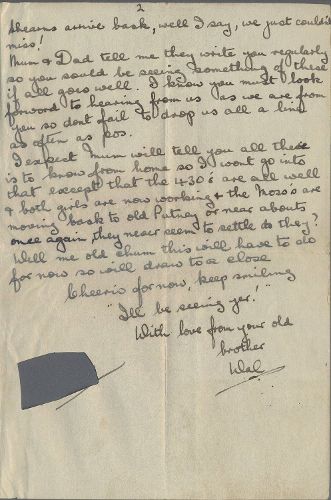 2
Shearns arrive back, well I say, we just couldn't
miss!
Mum & Dad tell me they write you regularly
so you sould be seeing something of these
if all goes well. I know you must look
forward to hearing from us as we are from
you so dont fail to drop us all a line
as often as pos.
I expect Mum will tell you all there
is to know from home so I wont go into
that except that the 430's are all well
& both girls are now working & the
moving back to old Putney or near abouts
once again, they never seem to settle do they?
Well me old chum this will have to do
for now so will draw to a close
Cheerio for now, keep smiling
"I'll be seeing yer!"
With love from your old
brother
Wal